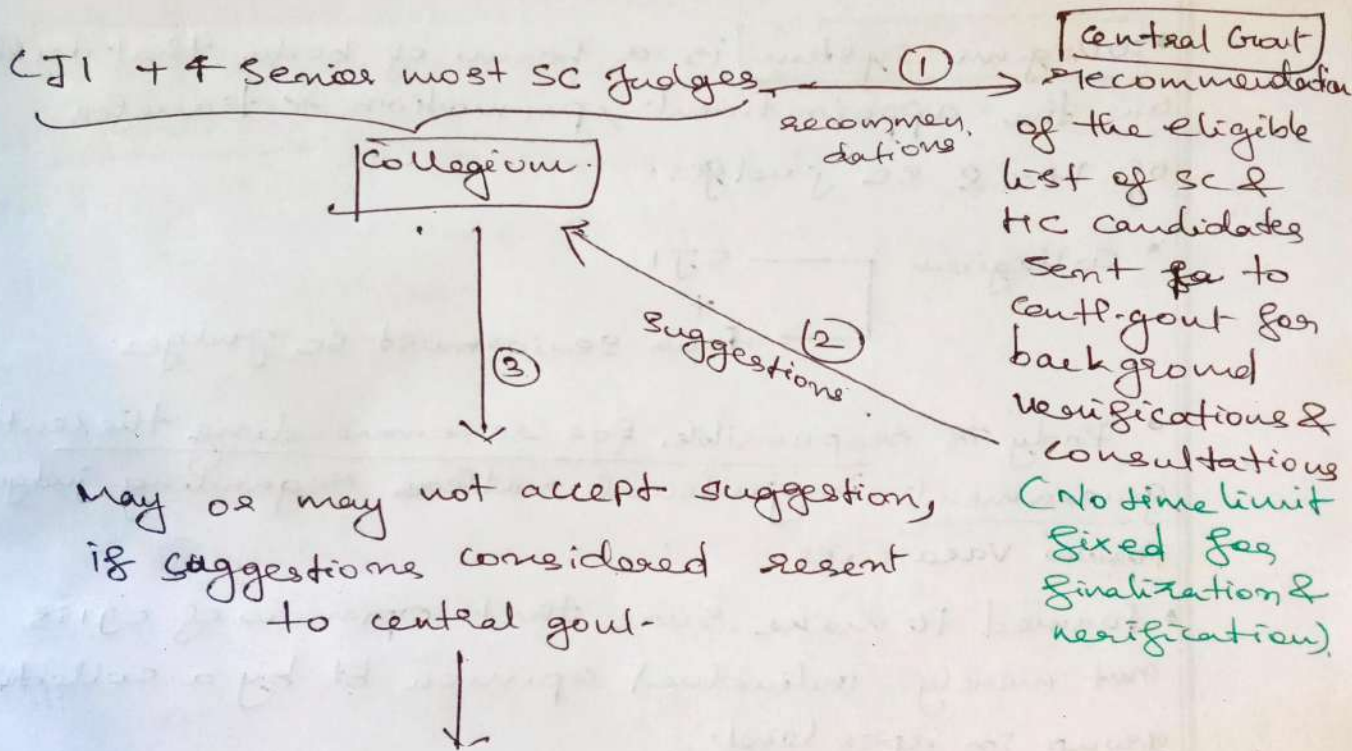 CJI + 4 Senior most SC Judges
①
recommen.
dations
Collegium.
Central Govt
recommendation
of the eligible
list of SC &
HC candidates
sent to
centl. govt for
background
verifications &
consultations
(No time limit
fixed for
finalization &
verification).
② suggestions
③
May or may not accept suggestion,
if suggestions considered resent
to central govt.